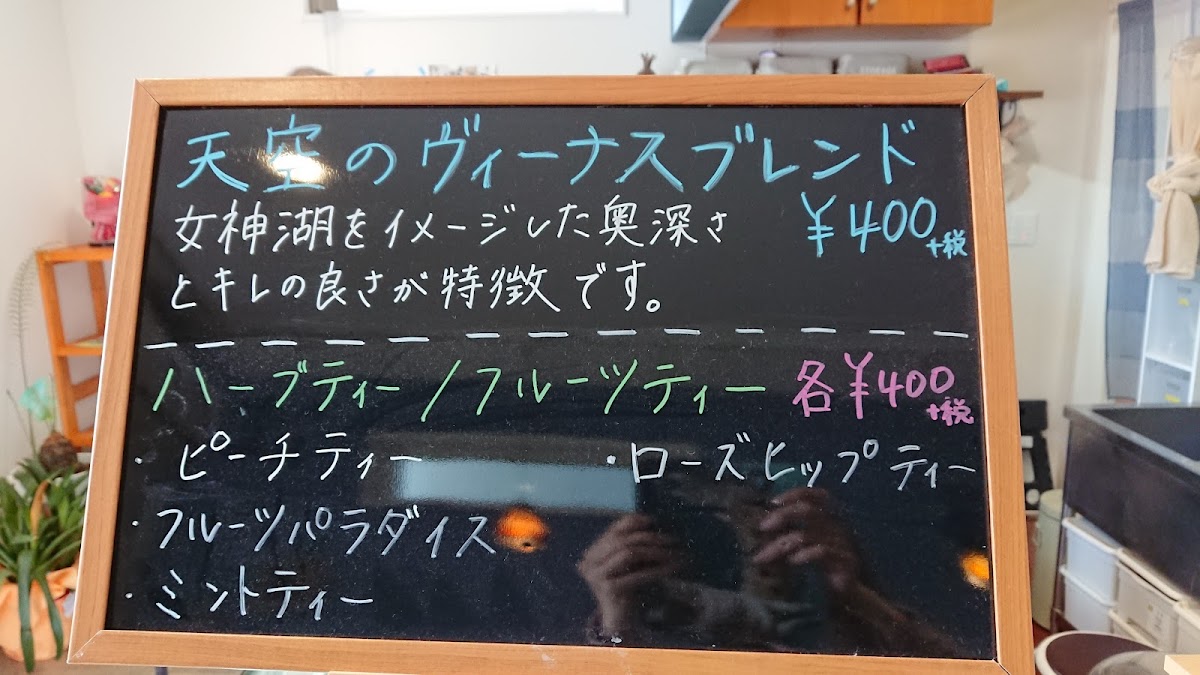 天空のヴィーナスブレンド
女神湖をイメージした奥深さ ¥400+税
とキレの良さが特徴です。
ハーブティー/フルーツティー 各¥400+税
・ピーチティー ・ローズヒップティー
・フルーツパラダイス
・ミントティー